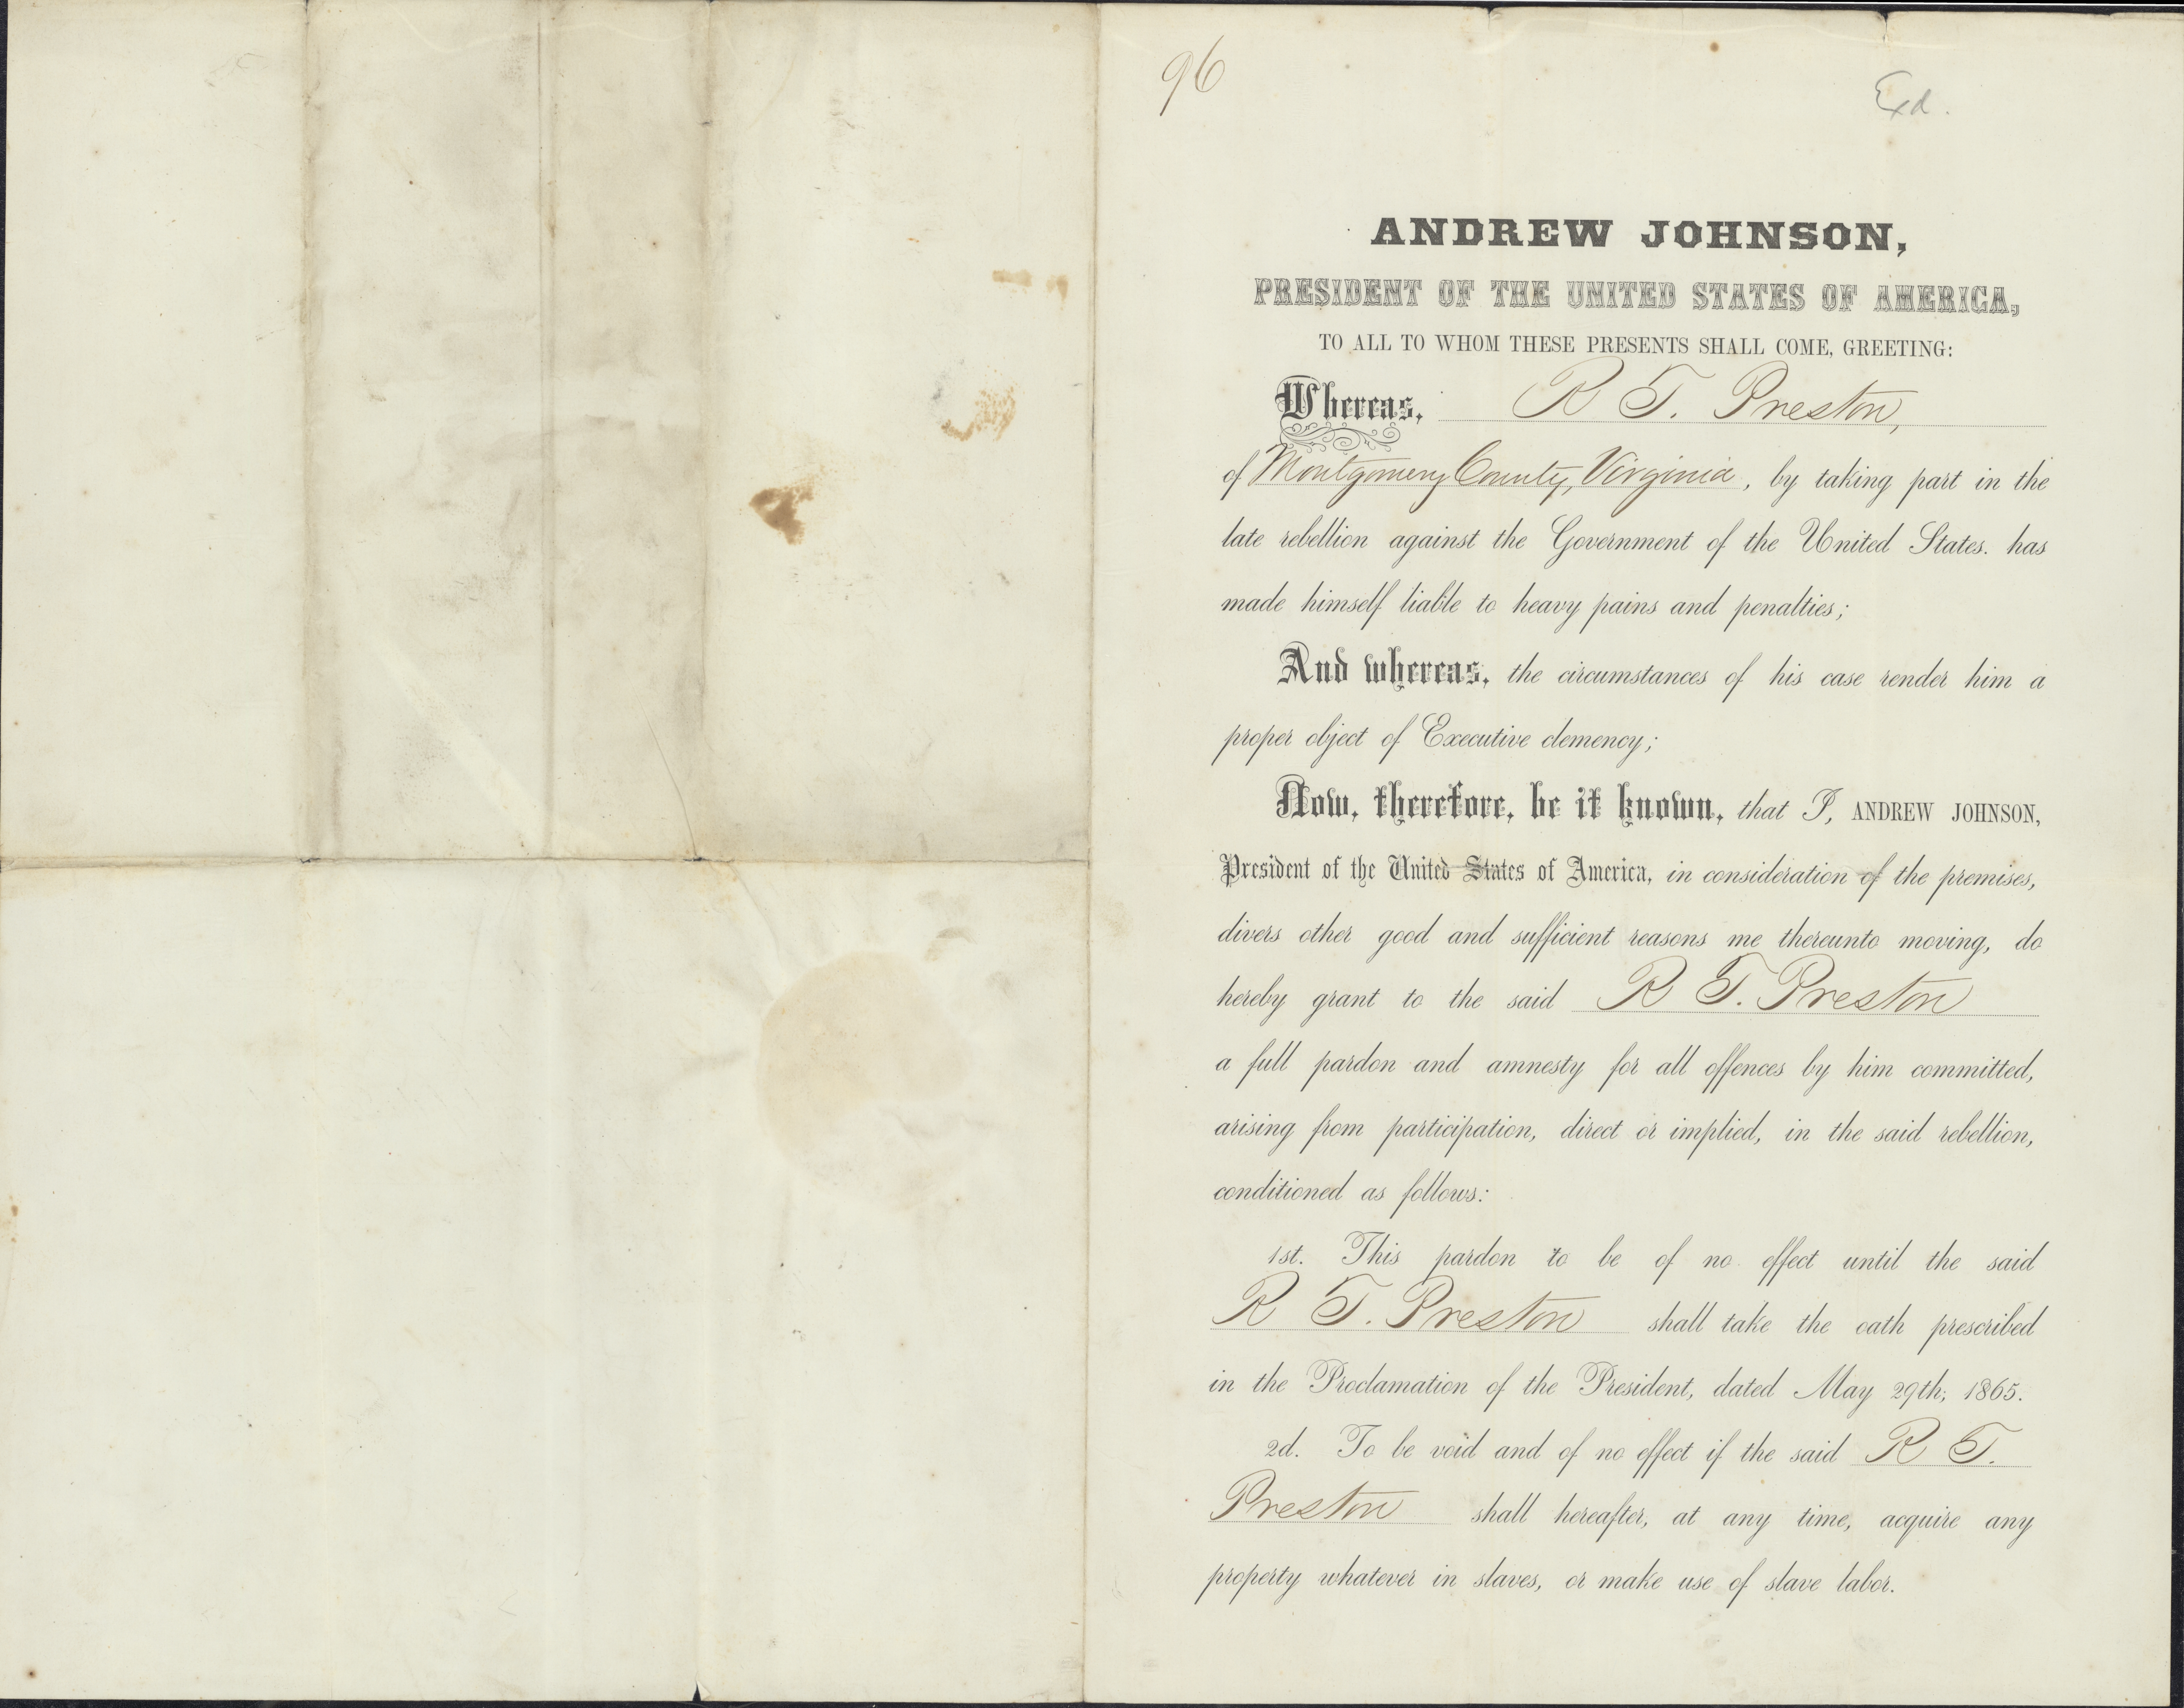 96
Exd.
ANDREW JOHNSON,
PRESIDENT OF THE UNITED STATES OF AMERICA,
TO ALL TO WHOM THESE PRESENTS SHALL COME, GREETING:
Whereas, R T. Preston,
of Montgomery County, Virginia, by taking part in the
late rebellion against the Government of the United States. has
made himself liable to heavy pains and penalties;
And whereas, the circumstances of his case render him a
proper object of Executive clemency;
Now, therefore, be it known, that I, ANDREW JOHNSON,
President of the United States of America, in consideration of the premises,
divers other good and sufficient reasons me thereunto moving, do
hereby grant to the said R T. Preston
a full pardon and amnesty for all offences by him committed,
arising from participation, direct or implied, in the said rebellion,
conditioned as follows:
1st. This pardon to be of no effect until the said
R T. Preston shall take the oath prescribed
in the Proclamation of the President, dated May 29th, 1865.
2d. To be void and of no effect if the said R T.
Preston shall hereafter, at any time, acquire any
property whatever in slaves, or make use of slave labor.